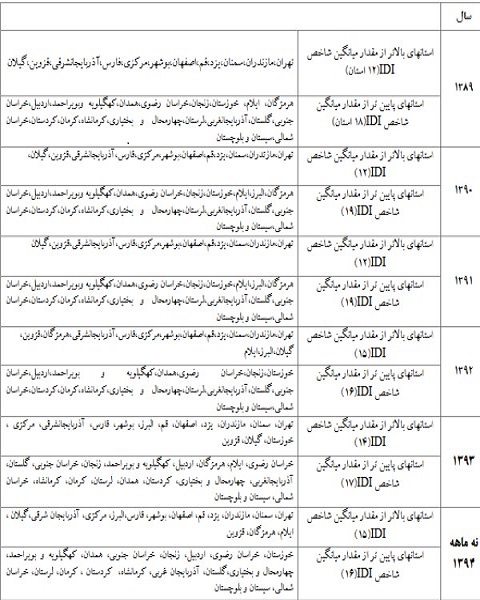 سال
۱۳۸۹
استانهای بالاتر از مقدار میانگین شاخص
IDI(۱۲ استان)
تهران،مازندران،سمنان،یزد،قم،اصفهان،بوشهر،مرکزی،فارس،آذربایجانشرقی،قزوین،گیلان
استانهای پایین تر از مقدار میانگین
شاخص IDI(۱۸ استان)
هرمزگان، ایلام، خوزستان،زنجان،خراسان رضوی،همدان،کهگیلویه وبویراحمد،اردبیل،خراسان
جنوبی،گلستان،آذربایجانغربی،لرستان،چهارمحال و بختیاری،کرمانشاه،کرمان،کردستان،خراسان
شمالی،سیستان و بلوچستان
۱۳۹۰
استانهای بالاتر از مقدار میانگین شاخص
IDI(۱۲)
تهران،مازندران،سمنان،یزد،قم،اصفهان،بوشهر،مرکزی،فارس،آذربایجانشرقی،قزوین،گیلان،
استانهای پایین تر از مقدار میانگین
شاخص IDI(۱۹)
هرمزگان،البرز،ایلام،خوزستان،زنجان،خراسان رضوی،همدان،کهگیلویه وبویراحمد،اردبیل،خراسان
جنوبی،گلستان،آذربایجانغربی،لرستان،چهارمحال و بختیاری،کرمانشاه،کرمان،کردستان،خراسان
شمالی،سیستان و بلوچستان
۱۳۹۱
استانهای بالاتر از مقدار میانگین شاخص
IDI(۱۲)
تهران،مازندران،سمنان،یزد،قم،اصفهان،بوشهر،مرکزی،فارس،آذربایجانشرقی،قزوین،گیلان
استانهای پایین تر از مقدار میانگین
شاخص IDI(۱۹)
هرمزگان،البرز،ایلام،خوزستان،زنجان،خراسان رضوی،همدان،کهگیلویه وبویراحمد،اردبیل،خراسان
جنوبی،گلستان،آذربایجانغربی،لرستان،چهارمحال و بختیاری،کرمانشاه،کرمان،کردستان،خراسان
شمالی،سیستان و بلوچستان
۱۳۹۲
استانهای بالاتر از مقدار میانگین شاخص
IDI(۱۵)
تهران،مازندران،سمنان،یزد،قم،اصفهان،بوشهر،مرکزی،فارس،آذربایجانشرقی،هرمزگان،قزوین،
گیلان،البرز،ایلام
استانهای پایین تر از مقدار میانگین
شاخص IDI(۱۶)
خوزستان،زنجان،خراسان رضوی،همدان،کهگیلویه و بویراحمد،اردبیل،خراسان
جنوبی،گلستان،آذربایجانغربی،لرستان،چهارمحال و بختیاری،کرمانشاه،کرمان،کردستان،خراسان
شمالی،سیستان و بلوچستان
۱۳۹۳
استانهای بالاتر از مقدار میانگین شاخص
IDI(۱۴)
تهران، سمنان، مازندران، یزد، اصفهان، قم، البرز، بوشهر، فارس، آذربایجانشرقی، مرکزی ،
خوزستان، گیلان، قزوین
استانهای پایین تر از مقدار میانگین
شاخص IDI(۱۷)
خراسان رضوی، ایلام، هرمزگان، اردبیل، کهگیلویه و بویراحمد، زنجان، خراسان جنوبی، گلستان،
آذربایجانغربی، چهارمحال و بختیاری، کردستان، همدان، لرستان، کرمان، کرمانشاه، خراسان
شمالی، سیستان و بلوچستان
نه ماهه
۱۳۹۴
استانهای بالاتر از مقدار میانگین شاخص
IDI(۱۵)
تهران، سمنان، مازندران، یزد، قم، اصفهان، بوشهر، فارس،البرز، مرکزی، آذربایجان شرقی،گیلان ،
ایلام، هرمزگان، قزوین
استانهای پایین تر از مقدار میانگین
شاخص IDI(۱۶)
خوزستان، خراسان رضوی، اردبیل، زنجان، خراسان جنوبی، همدان، کهگیلویه و بویراحمد،
چهارمحال و بختیاری،گلستان، آذربایجان غربی، کرمانشاه، کردستان ، کرمان، لرستان، خراسان
شمالی، سیستان و بلوچستان